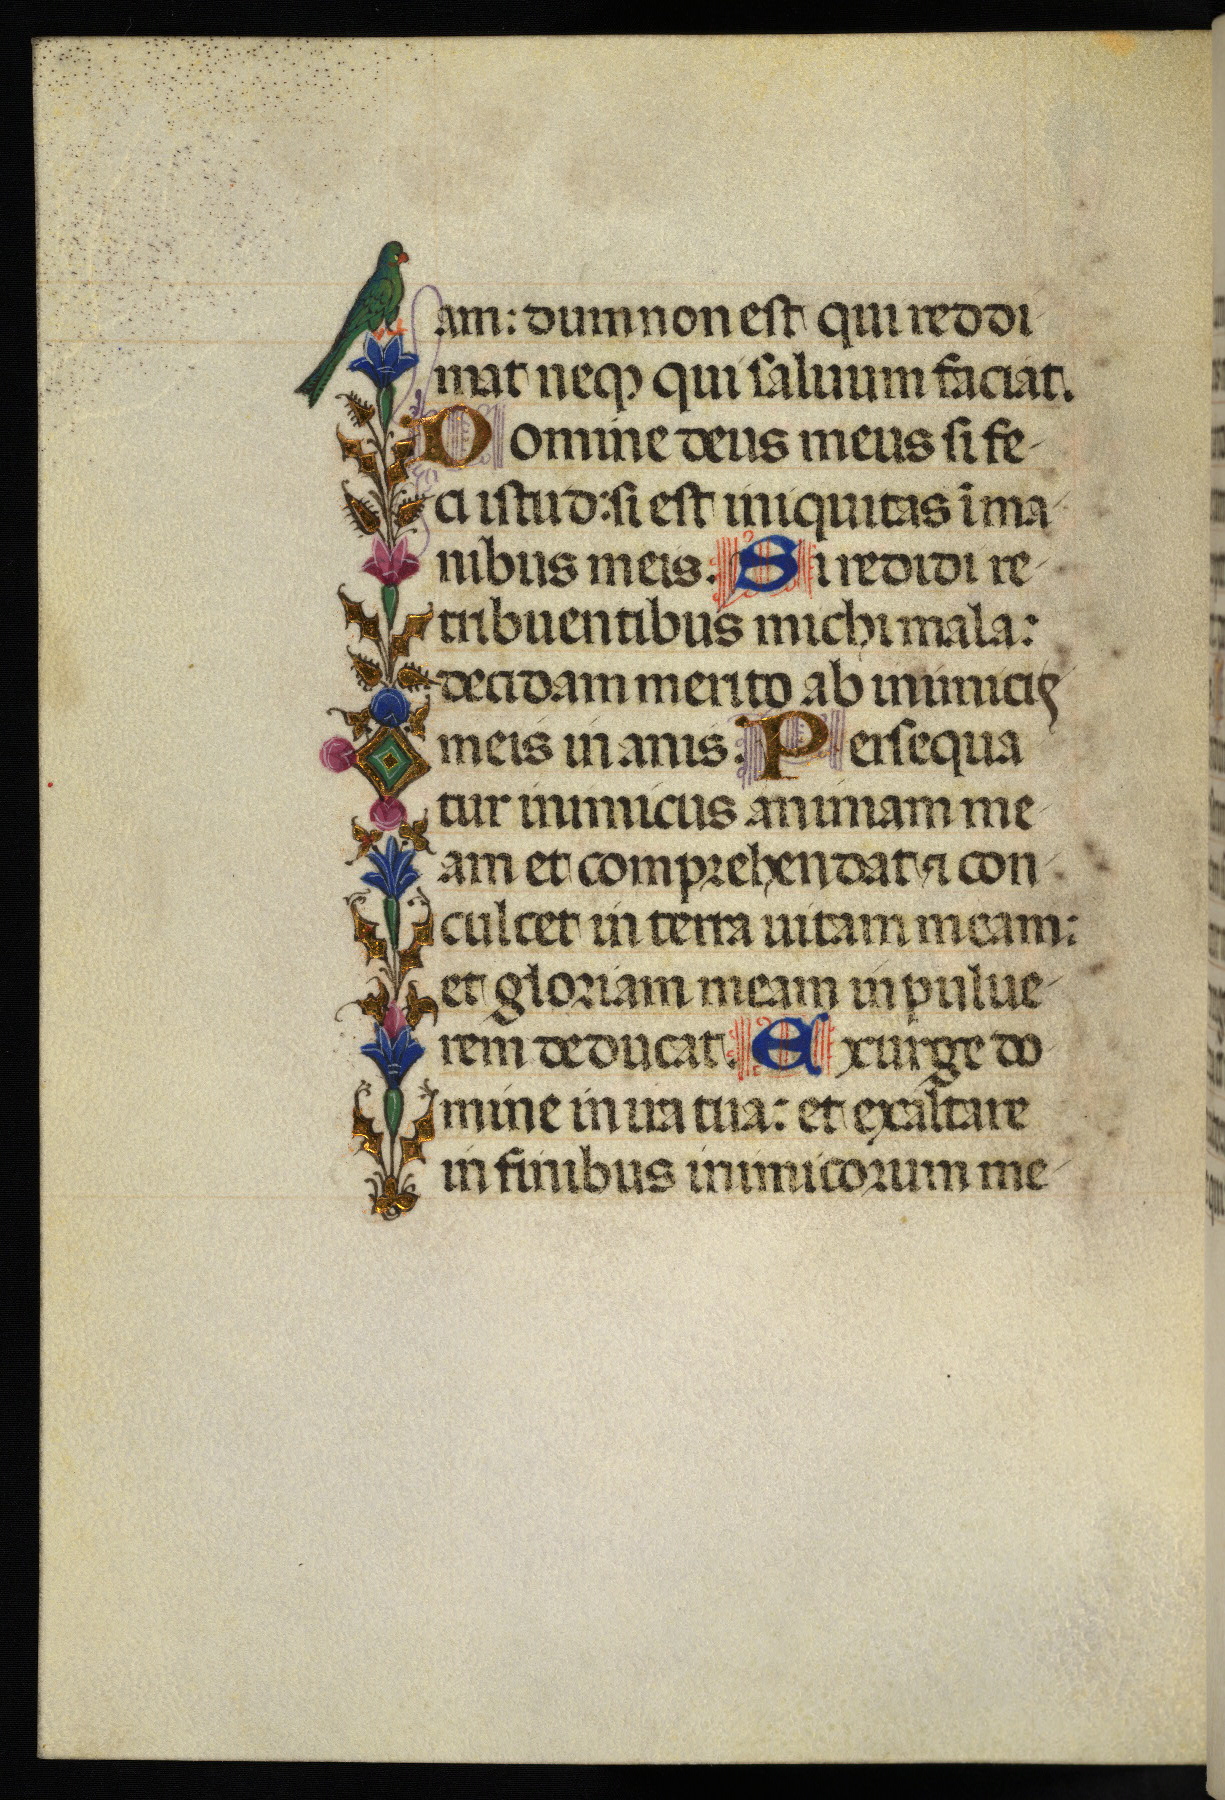 am: dum non est qui reddi
mat neqꝫ qui saluum faciat.
Domine deus meus si fe-
ci istud: si est iniquitas ī ma-
nibus meis. Si redidi re-
tribuentibus michi mala:
decidam merito ab inimicis
meis inanis. Persequa
tur inimicus animam me-
am et comprehendat ⁊ con-
culcet in terra uitam meam:
et gloriam meam in pulue-
rem deducat. Exurge do
mine in ira tua: et exaltare
in finibus inimicorum me-